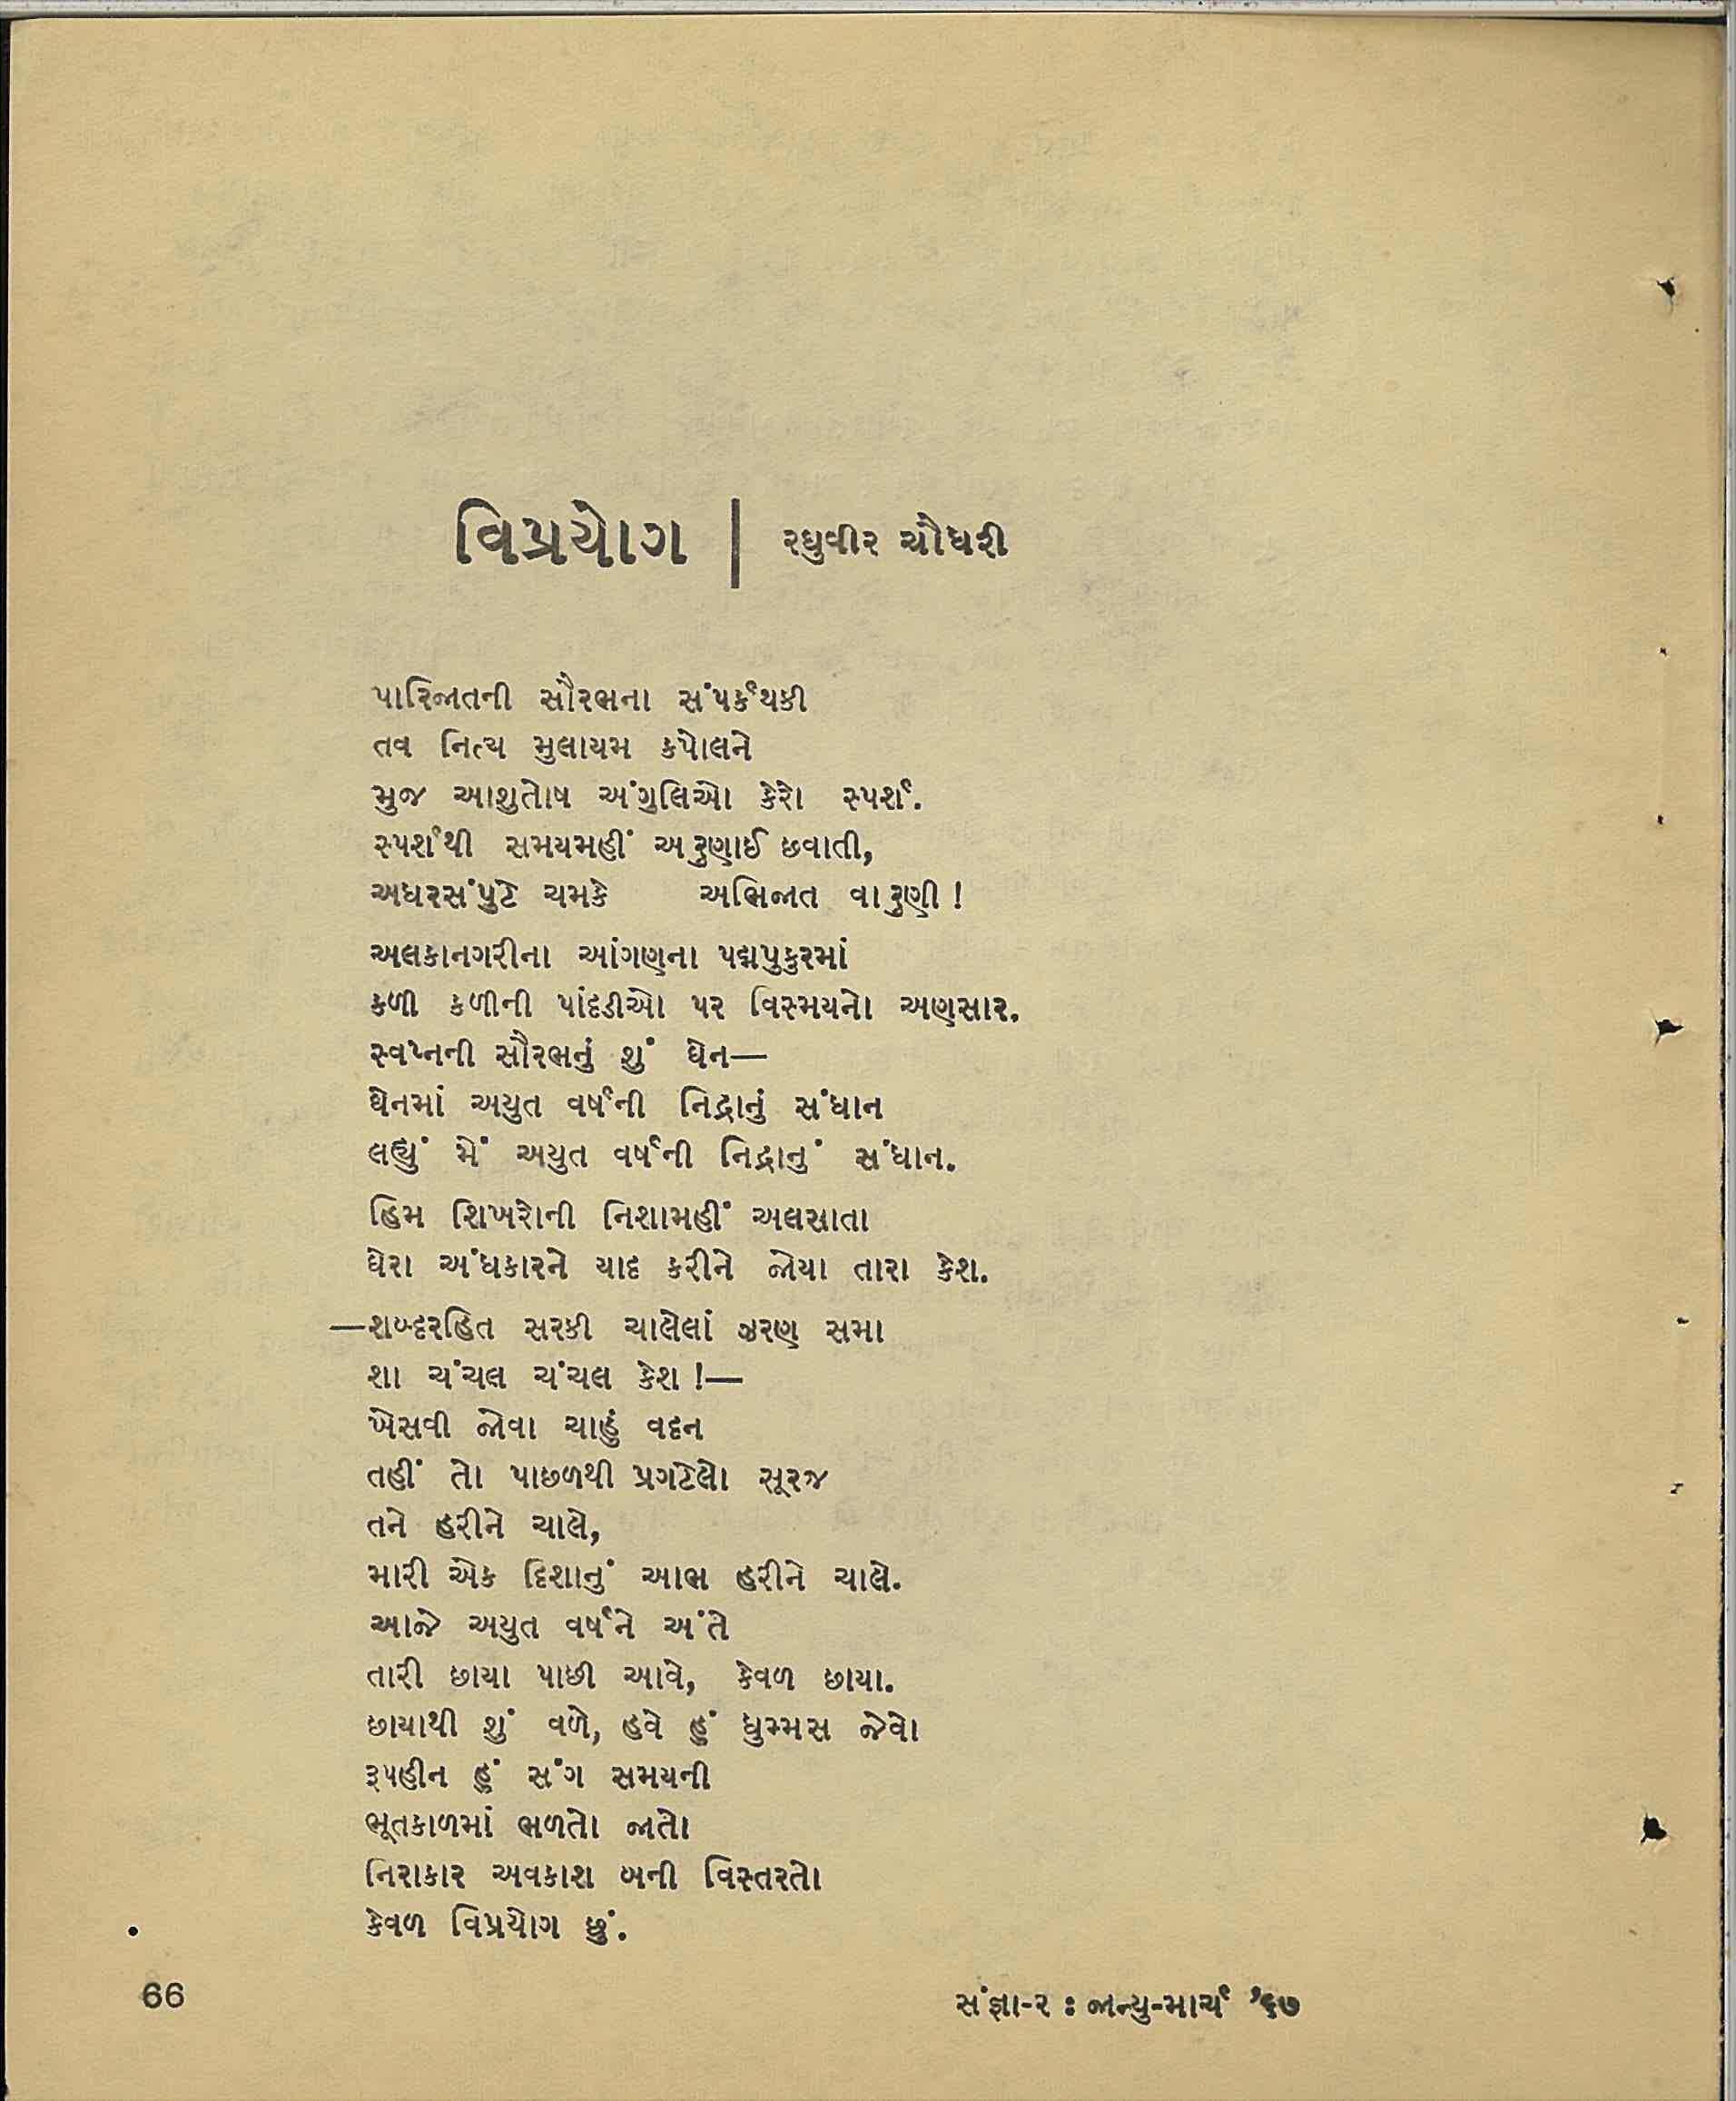 વિપ્રયોગ | રઘુવીર ચૌધરી
પારિજાતની સૌરભના સંપર્કથકી
તવ નિત્ય મુલાયમ કપોલને
મુજ આશુતોષ અંગુલિઓ કેરો સ્પર્શ.
સ્પર્શથી સમયમહીં અરુણાઈ છવાતી,
અધરસંપુટે ચમકે અભિજાત વારુણી !
અલકાનગરીના આંગણના પદ્મપુકુરમાં
કળી કળીની પાંદડીઓ પર વિસ્મયનો અણસાર.
સ્વપ્નની સૌરભનું શું ઘેન—
ઘેનમાં અયુત વર્ષની નિદ્રાનું સંધાન
લહ્યું મેં અયુત વર્ષની નિદ્રાનું સંધાન.
હિમ શિખરોની નિશામહીં અલસાતા
ઘેરા અંધકારને યાદ કરીને જોયા તારા કેશ.
—શબ્દરહિત સરકી ચાલેલાં ઝરણ સમા
શા ચંચલ ચંચલ કેશ !—
ખેસવી જોવા ચાહું વદન
તહીં તો પાછળથી પ્રગટેલો સૂરજ
તને હરીને ચાલે,
મારી એક દિશાનું આભ હરીને ચાલે.
આજે અયુત વર્ષને અંતે
તારી છાયા પાછી આવે, કેવળ છાયા.
છાયાથી શું વળે, હવે હું ધુમ્મસ જેવો
રૂપહીન હું સંગ સમયની
ભૂતકાળમાં ભળતો જાતો
નિરાકાર અવકાશ બની વિસ્તરતો
કેવળ વિપ્રયોગ છું.
66
સંજ્ઞા-૨ : જાન્યુ-માર્ચ ’૬૭